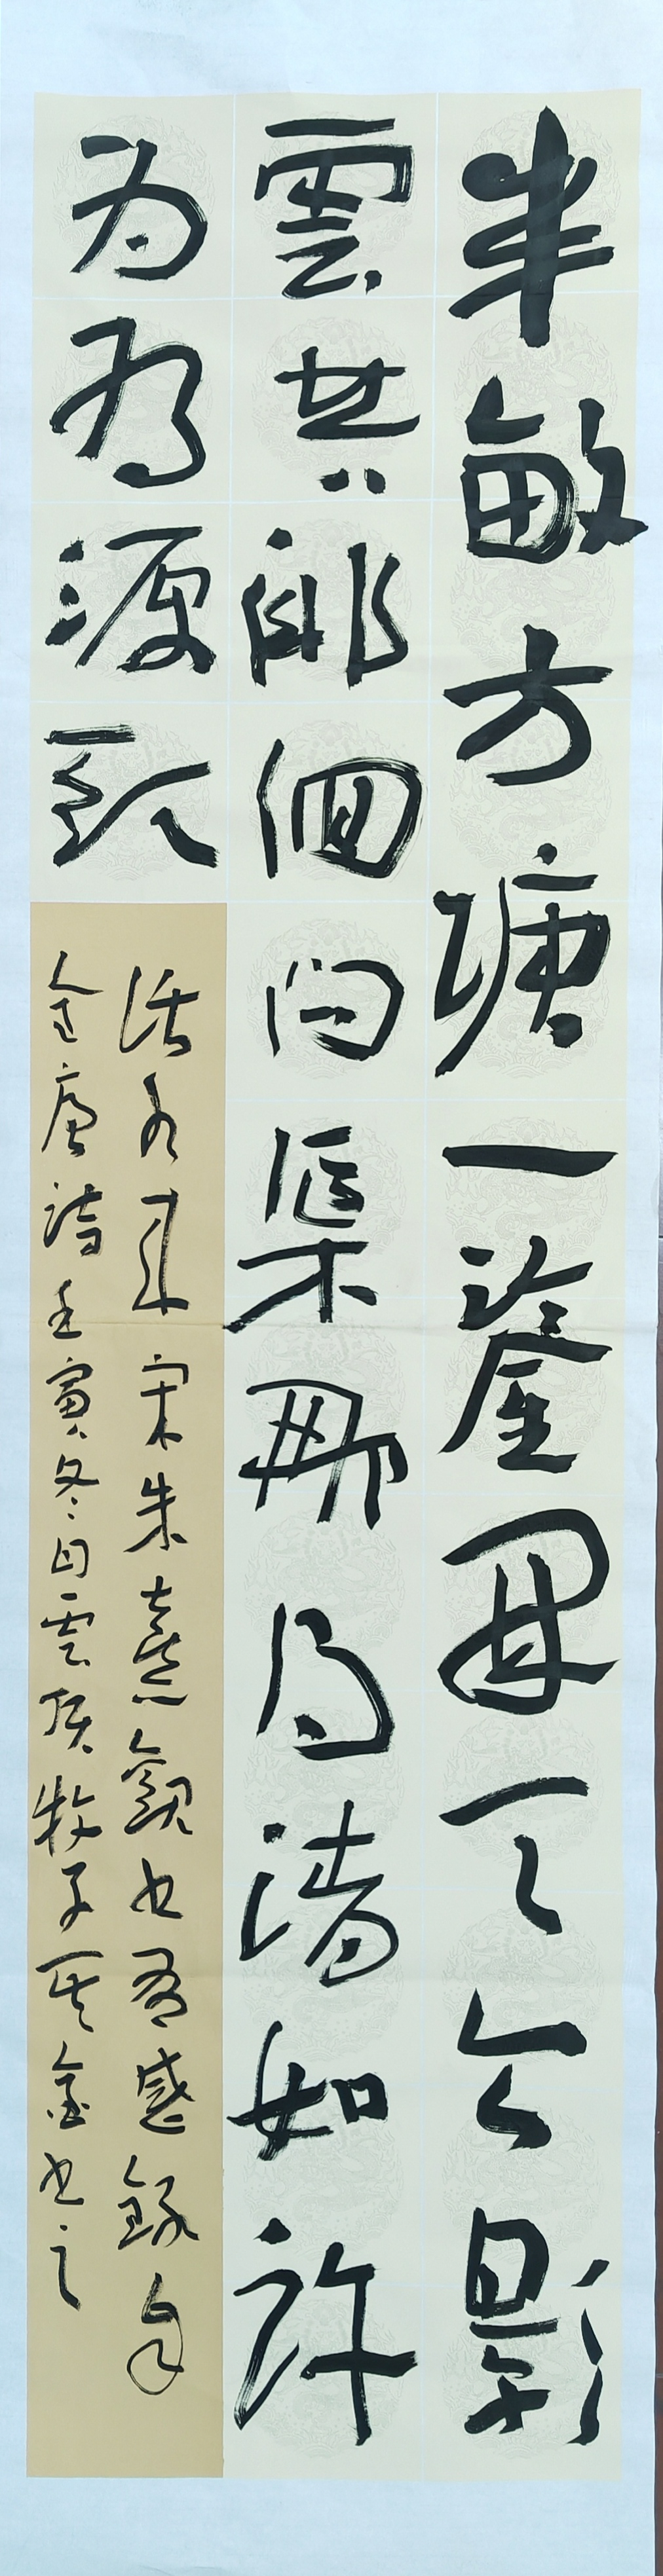 半畝方塘一鑒開天光影
雲共徘徊問渠那得清如許
为有源頭
活水来宋朱熹觀書有感錄自
全唐詩壬寅冬月雲侯牧子其金書之